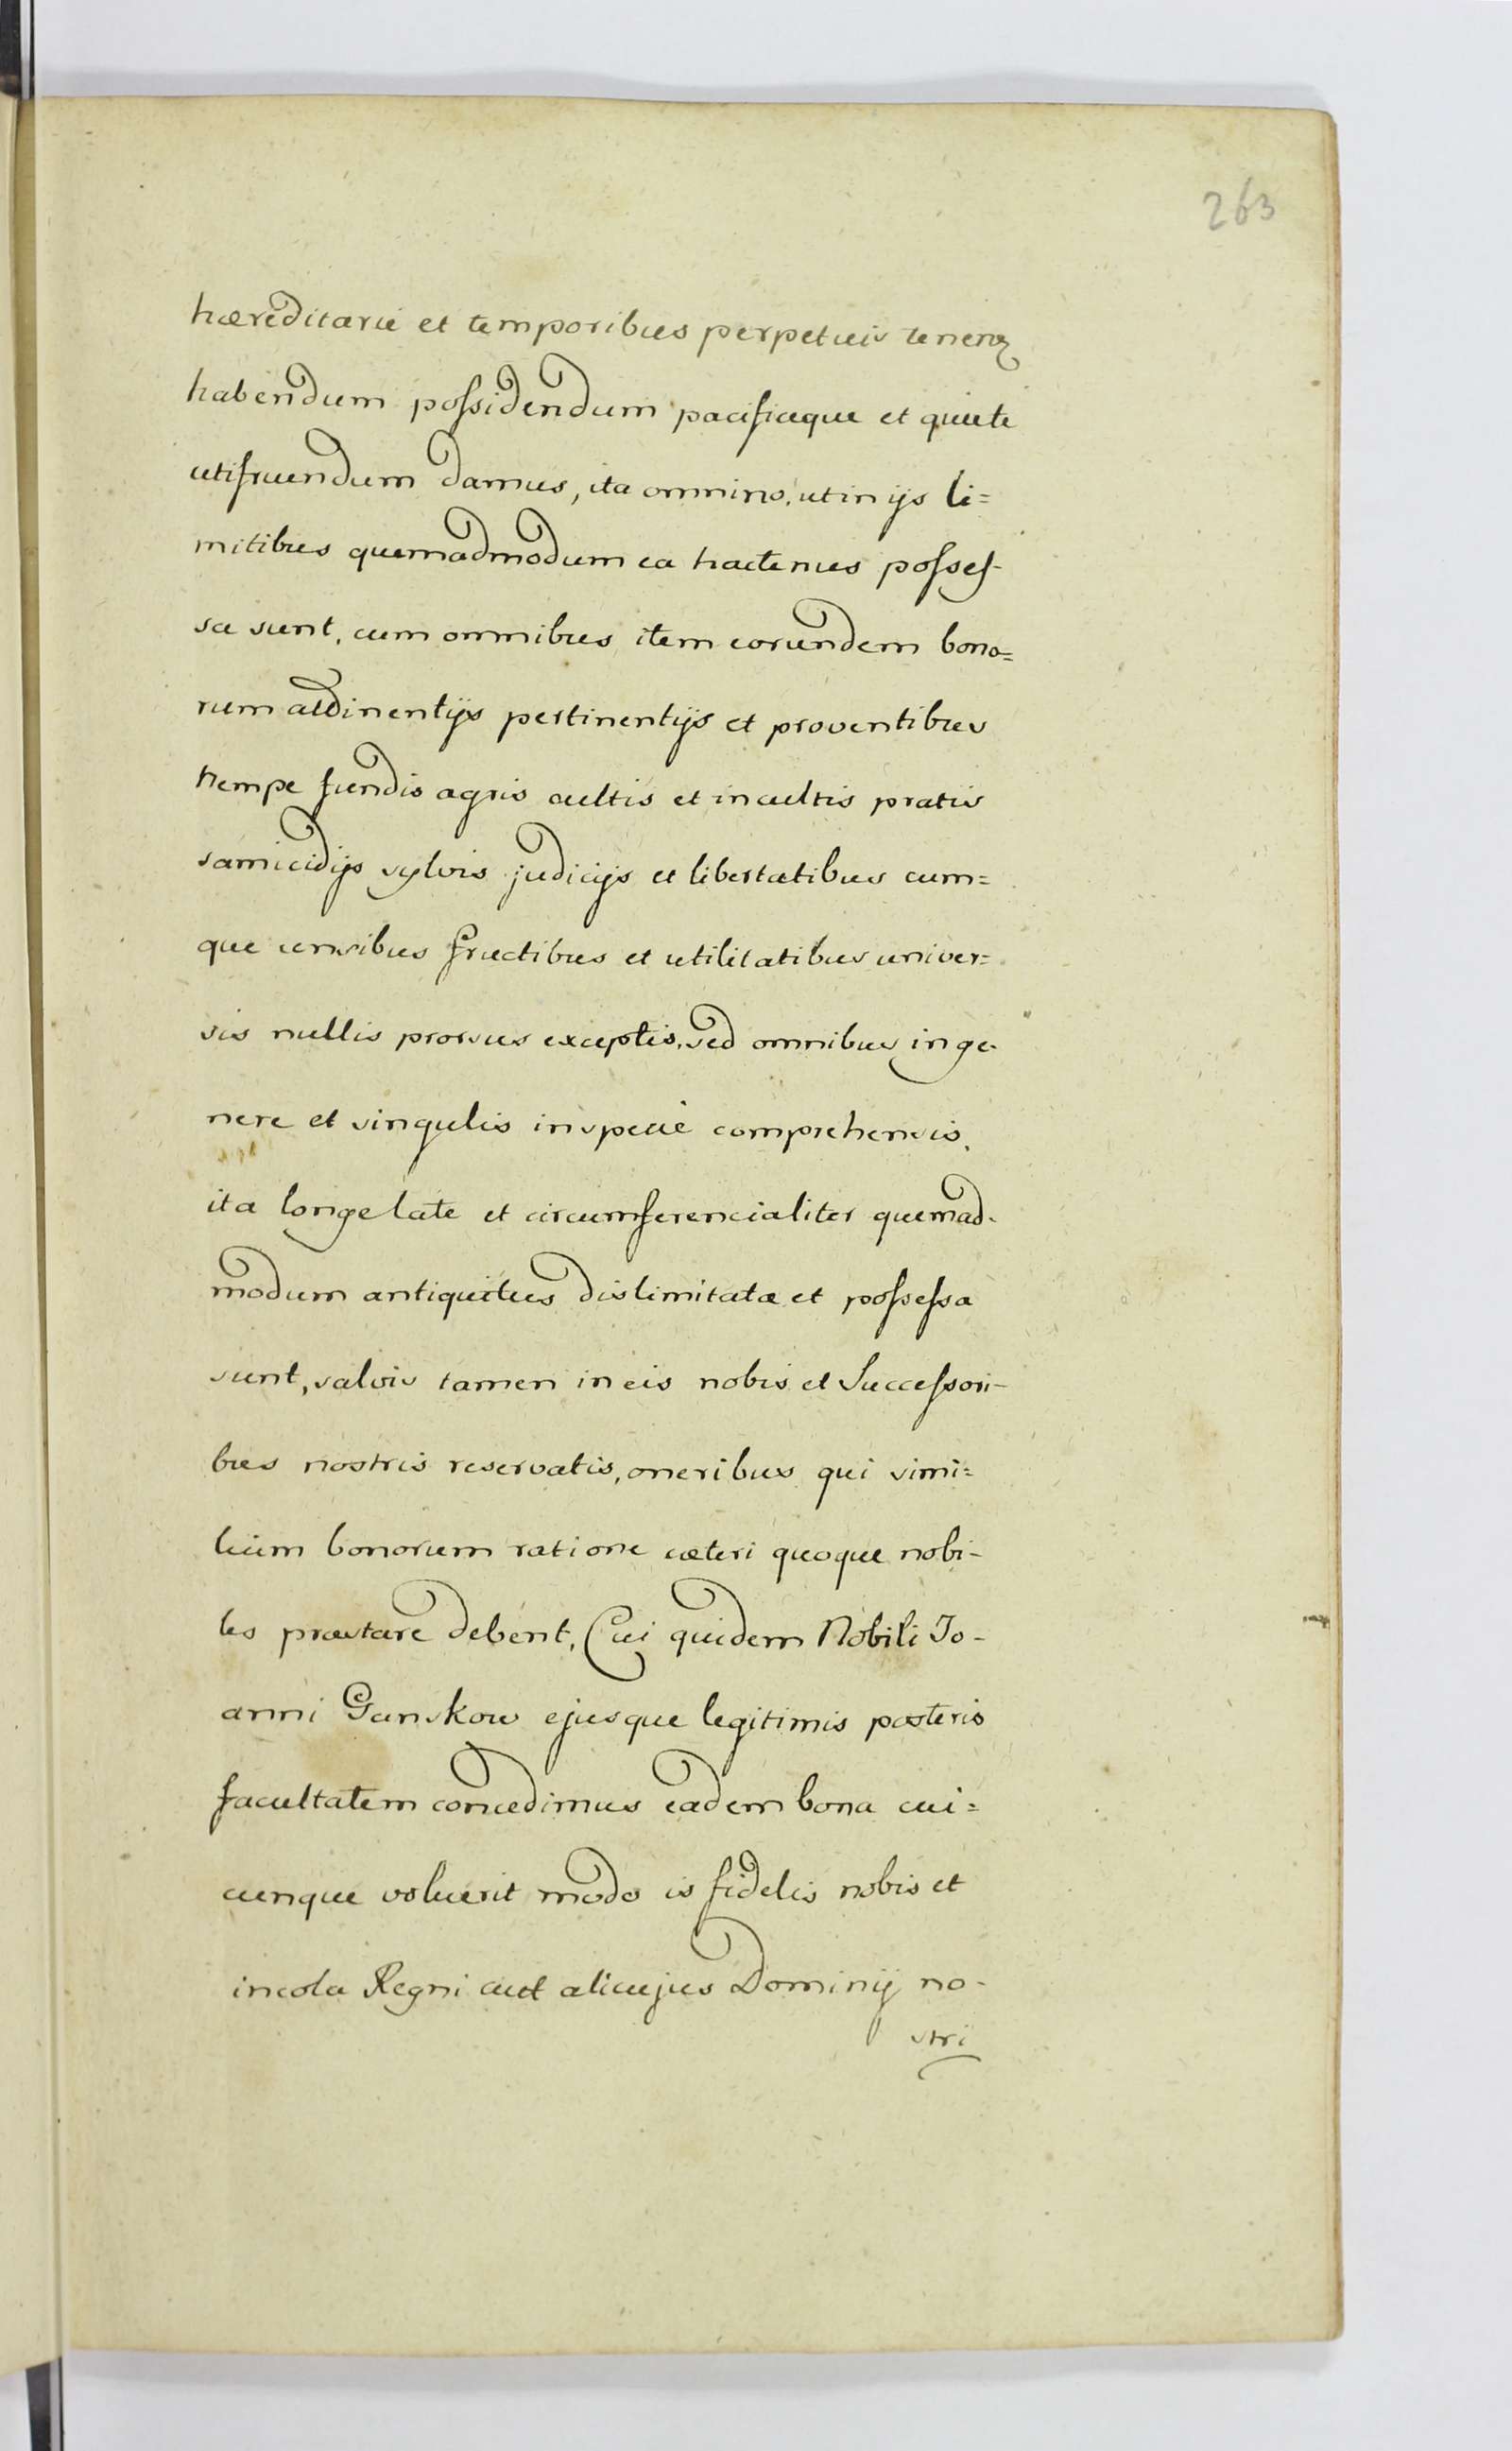 263
hæreditarie et temporibus perpetuis tenend
habendum possidendum pacificeque et quiete
utifruendum damus, ita omnino, ut in ijs li=
mitibus quemadmodum ea hactenus posses-
sa sunt, cum omnibus item eorundem bono=
rum addinentijs pertinentijs et proventibus
nempe fundis agris cultis et incultis pratis
samicidijs sylvis judicijs et libertatibus cum=
que censibus fructibus et utilitatibus univer=
sis nullis prorsus exceptis, sed omnibus in ge-
nere et singulis in specie comprehensis,
ita longe late et circumferencialiter quemad-
modum antiquitus dislimitata et possessa
sunt, salvis tamen in eis nobis et Successori-
bus nostris reservatis, oneribus qui simi=
lium bonorum ratione cæteri quoque nobi-
les præstare debent, Cui quidem Nobili Jo-
anni Ganskow ejusque legitimis posteris
facultatem concedimus eadem bona cui=
cunque voluerit modo is fidelis nobis et
incola Regni aut alicujus Dominij no-
stri